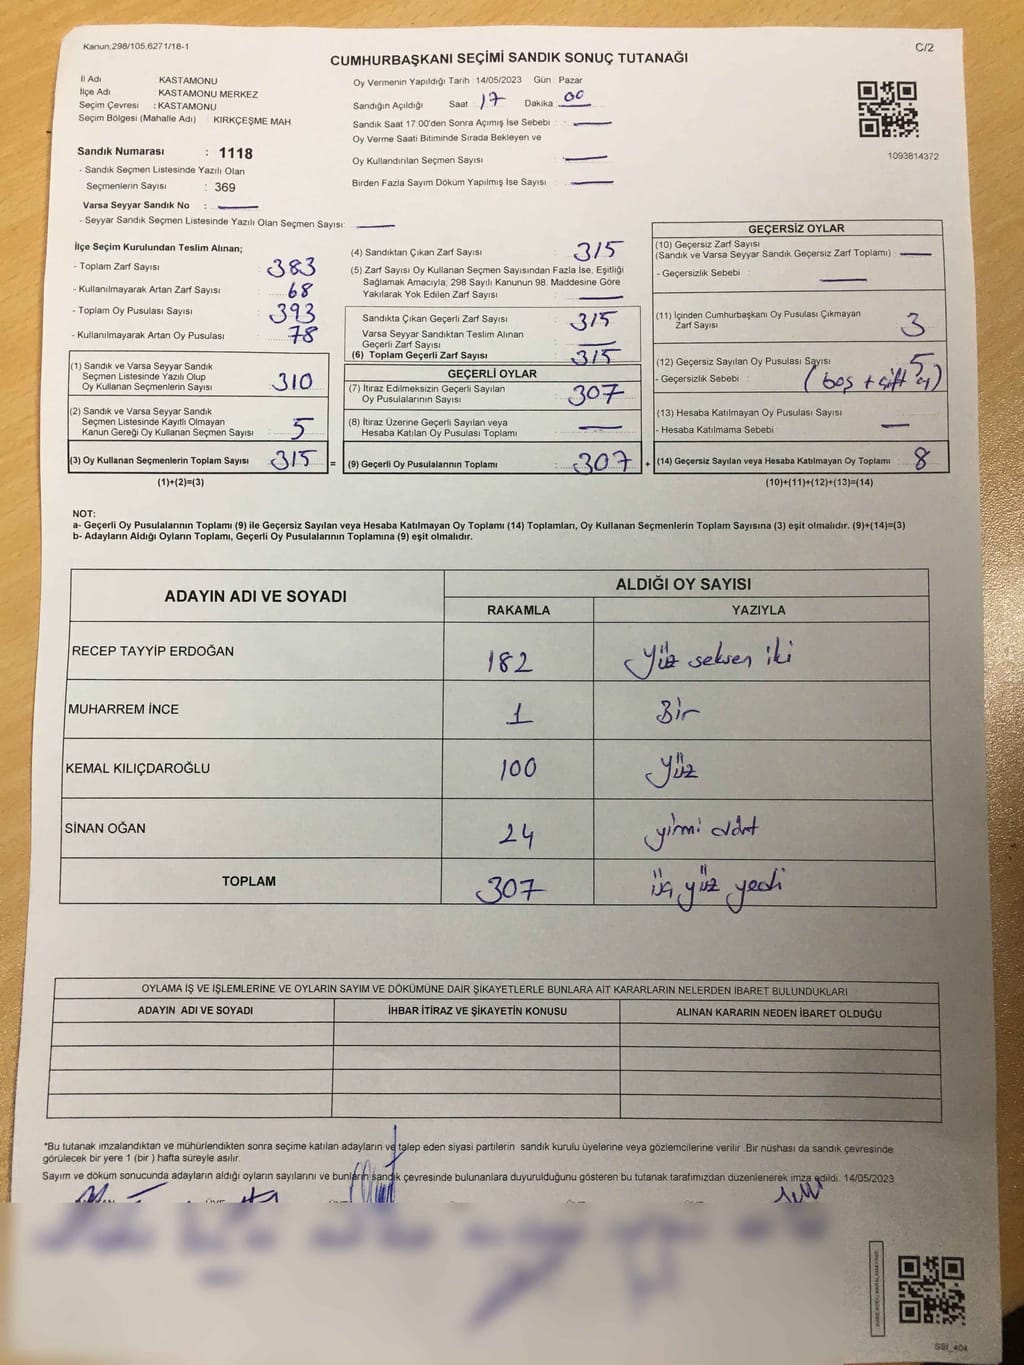 Kanun,298/105,6271/18-1
C/2
CUMHURBAŞKANI SEÇİMİ SANDIK SONUÇ TUTANAĞI
İl Adı KASTAMONU
İlçe Adı KASTAMONU MERKEZ
Seçim Çevresi : KASTAMONU
Seçim Bölgesi (Mahalle Adı) KIRKÇEŞME MAH.
Sandık Numarası : 1118
- Sandık Seçmen Listesinde Yazılı Olan
Seçmenlerin Sayısı : 369
Varsa Seyyar Sandık No :
- Seyyar Sandık Seçmen Listesinde Yazılı Olan Seçmen Sayısı:
Oy Vermenin Yapıldığı Tarih : 14/05/2023 Gün : Pazar
Sandığın Açıldığı Saat 17 Dakika 00
Sandık Saat 17:00'den Sonra Açımış İse Sebebi :
Oy Verme Saati Bitiminde Sırada Bekleyen ve
Oy Kullandırılan Seçmen Sayısı
Birden Fazla Sayım Döküm Yapılmış İse Sayısı
1093814372
İlçe Seçim Kurulundan Teslim Alınan;
- Toplam Zarf Sayısı : 383
- Kullanılmayarak Artan Zarf Sayısı : 68
- Toplam Oy Pusulası Sayısı : 393
- Kullanılmayarak Artan Oy Pusulası : 78
(1) Sandık ve Varsa Seyyar Sandık
Seçmen Listesinde Yazılı Olup
Oy Kullanan Seçmenlerin Sayısı : 310
(2) Sandık ve Varsa Seyyar Sandık
Seçmen Listesinde Kayıtlı Olmayan
Kanun Gereği Oy Kullanan Seçmen Sayısı : 5
(3) Oy Kullanan Seçmenlerin Toplam Sayısı : 315 =
(1)+(2)=(3)
(4) Sandıktan Çıkan Zarf Sayısı : 315
(5) Zarf Sayısı Oy Kullanan Seçmen Sayısından Fazla İse, Eşitliği
Sağlamak Amacıyla; 298 Sayılı Kanunun 98. Maddesine Göre
Yakılarak Yok Edilen Zarf Sayısı :
Sandıkta Çıkan Geçerli Zarf Sayısı : 315
Varsa Seyyar Sandıktan Teslim Alınan
Geçerli Zarf Sayısı :
(6) Toplam Geçerli Zarf Sayısı : 315
GEÇERLİ OYLAR
(7) İtiraz Edilmeksizin Geçerli Sayılan
Oy Pusulalarının Sayısı : 307
(8) İtiraz Üzerine Geçerli Sayılan veya
Hesaba Katılan Oy Pusulası Toplamı :
(9) Geçerli Oy Pusulalarının Toplamı : 307 +
GEÇERSİZ OYLAR
(10) Geçersiz Zarf Sayısı
(Sandık ve Varsa Seyyar Sandık Geçersiz Zarf Toplamı) :
- Geçersizlik Sebebi :
(11) İçinden Cumhurbaşkanı Oy Pusulası Çıkmayan
Zarf Sayısı : 3
(12) Geçersiz Sayılan Oy Pusulası Sayısı : 5
- Geçersizlik Sebebi : (boş + çift oy)
(13) Hesaba Katılmayan Oy Pusulası Sayısı
- Hesaba Katılmama Sebebi :
(14) Geçersiz Sayılan veya Hesaba Katılmayan Oy Toplamı : 8
(10)+(11)+(12)+(13)=(14)
NOT:
a- Geçerli Oy Pusulalarının Toplamı (9) ile Geçersiz Sayılan veya Hesaba Katılmayan Oy Toplamı (14) Toplamları, Oy Kullanan Seçmenlerin Toplam Sayısına (3) eşit olmalıdır. (9)+(14)=(3)
b- Adayların Aldığı Oyların Toplamı, Geçerli Oy Pusulalarının Toplamına (9) eşit olmalıdır.
ADAYIN ADI VE SOYADI
ALDIĞI OY SAYISI
RAKAMLA YAZIYLA
RECEP TAYYİP ERDOĞAN 182 Yüz seksen iki
MUHARREM İNCE 1 Bir
KEMAL KILIÇDAROĞLU 100 Yüz
SİNAN OĞAN 24 yirmi dört
TOPLAM 307 üç yüz yedi
OYLAMA İŞ VE İŞLEMLERİNE VE OYLARIN SAYIM VE DÖKÜMÜNE DAİR ŞİKAYETLERLE BUNLARA AİT KARARLARIN NELERDEN İBARET BULUNDUKLARI
ADAYIN ADI VE SOYADI İHBAR İTİRAZ VE ŞİKAYETİN KONUSU ALINAN KARARIN NEDEN İBARET OLDUĞU
*Bu tutanak imzalandıktan ve mühürlendikten sonra seçime katılan adayların ve talep eden siyasi partilerin sandık kurulu üyelerine veya gözlemcilerine verilir. Bir nüshası da sandık çevresinde
görülecek bir yere 1 (bir ) hafta süreyle asılır.
Sayım ve döküm sonucunda adayların aldığı oyların sayılarını ve bunların sandık çevresinde bulunanlara duyurulduğunu gösteren bu tutanak tarafımızdan düzenlenerek imza edildi. 14/05/2023